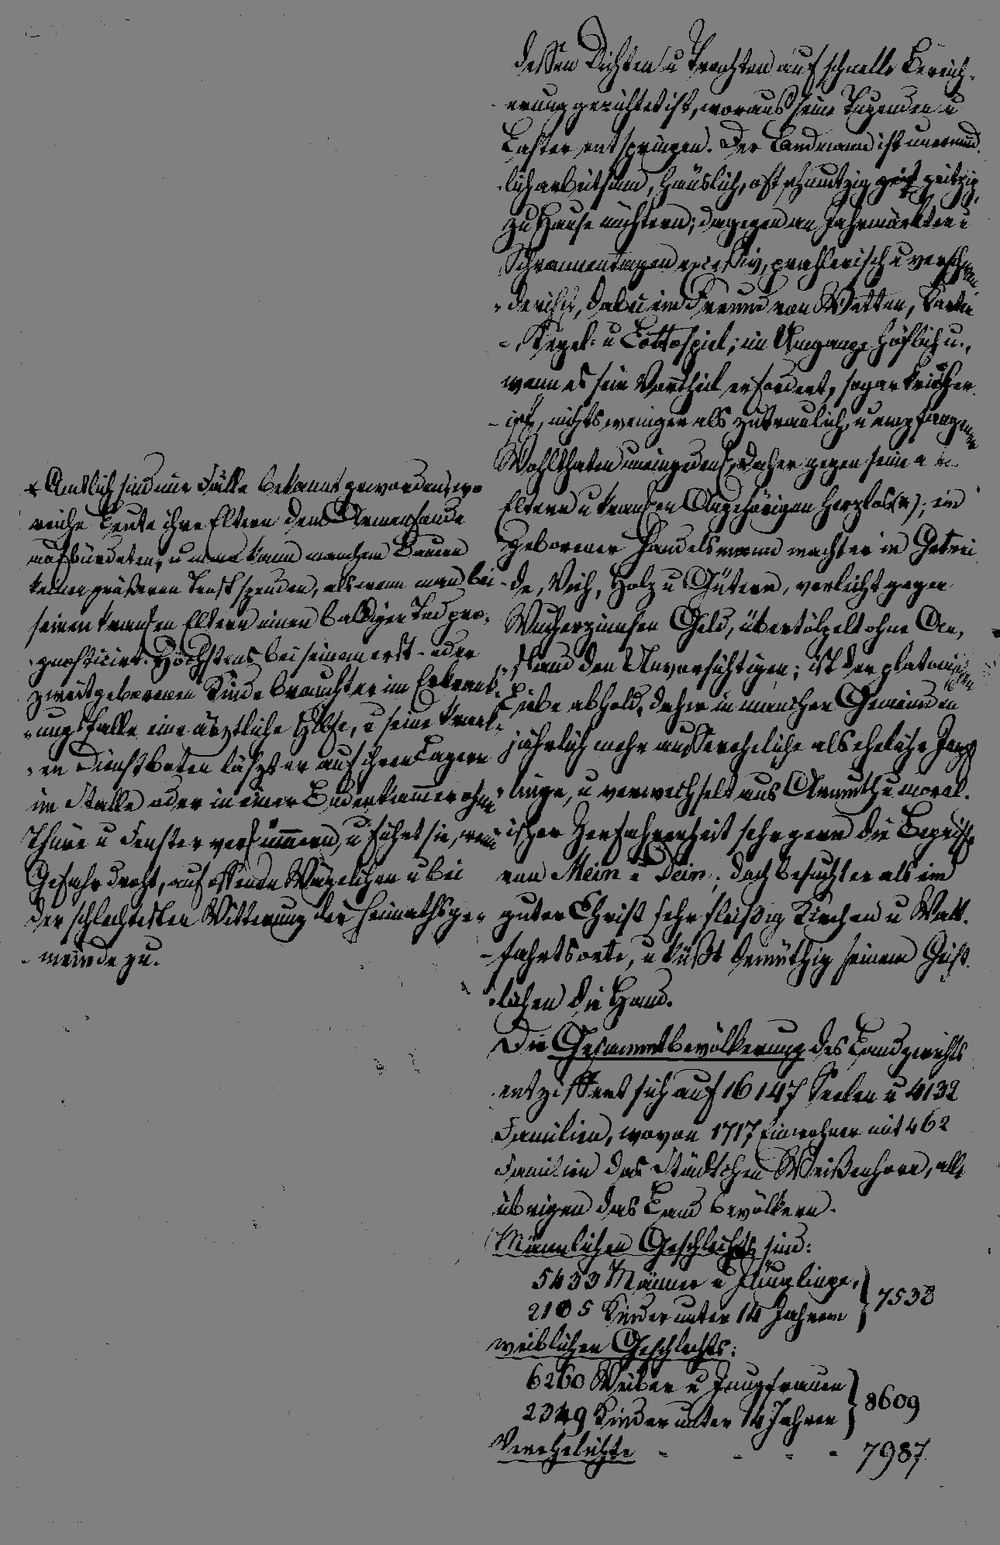 dessen Dichten u Trachten auf schnelle Bereich-
erung gerichtet ist, woraus seine Tugenden u
Laster entspringen. Der Landmann ist unermüd-
lich arbeitsam, häuslich, oft schmutzig geitzig,
zu Hause nüchtern; dagegen an Jahrmärkten u
Schrannentagen excessiv, prahlerisch u verschwen-
derisch, dabei ein Freund von Wetten, Karten
-, Kegel- u Lottospiel; im Umgange höflich u.,
wenn es sein Vortheil erfordert, sogar kriecher-
isch, nichts weniger als zutraulich, u empfangener
Wohlthaten uneingedenk, daher gegen seine
Eltern u kranken Angehörigen herzlos (*); ein
geborener Handelsmann wuchert er in Getrei-
de, Vieh, Holz u Gütern, verleiht gegen
Wucherzinsen Geld, übertölpelt ohne An-
stand den Unvorsichtigen; ist der platonischen
Liebe abhold, daher in manchen Gemeinden
jährlich mehr außereheliche als eheliche Spröß-
linge, u verwechselt aus Armuth u moral-
ischer Zerfahrenheit sehr gern die Begriffe
von Mein u Dein; doch besucht er als ein
guter Christ sehr fleißig Kirchen u Wall-
fahrtsorte, u küßt demüthig seinem Geist-
lichen die Hand.
Die Gesammtbevölkerung des Landgerichts
entziffert sich auf 16147 Seelen u 4132
Familien, wovon 1717 Einwohner mit 462
Familien das Städtchen Weißenhorn, alle
übrigen das Land bevölkern.
Männlichen Geschlechts sind:
5433 Männer u Jünglinge,
2105 Kinder unter 14 Jahren } 7538
weiblichen Geschlechts:
6260 Weiber u Jungfrauen
2349 Kinder unter 14 Jahren } 8609
Verehelichte - - - - 7987.
* Amtlich sind mir Fälle bekannt geworden, wo
reiche Leute ihre Eltern dem Armenfonde
aufbürdeten, u man kann manchem Bauern
keinen größeren Trost spenden, als wenn man bei
seinen kranken Eltern einen baldigen Tod pro-
gnosticirt. Höchstens bei seinem erst- oder
zweitgeborenen Kinde braucht er im Erkrank-
ungsfalle eine ärztliche Hilfe, u seine krank-
en Dienstboten läßt er auf ihren Lagern
im Stalle oder in einer Bodenkammer ohne
Thüre u Fenster verkümmern, u führt sie, wenn
Gefahr droht, auf offenen Wägelchen u bei
der schlechtesten Witterung der Heimathsge-
meinde zu.